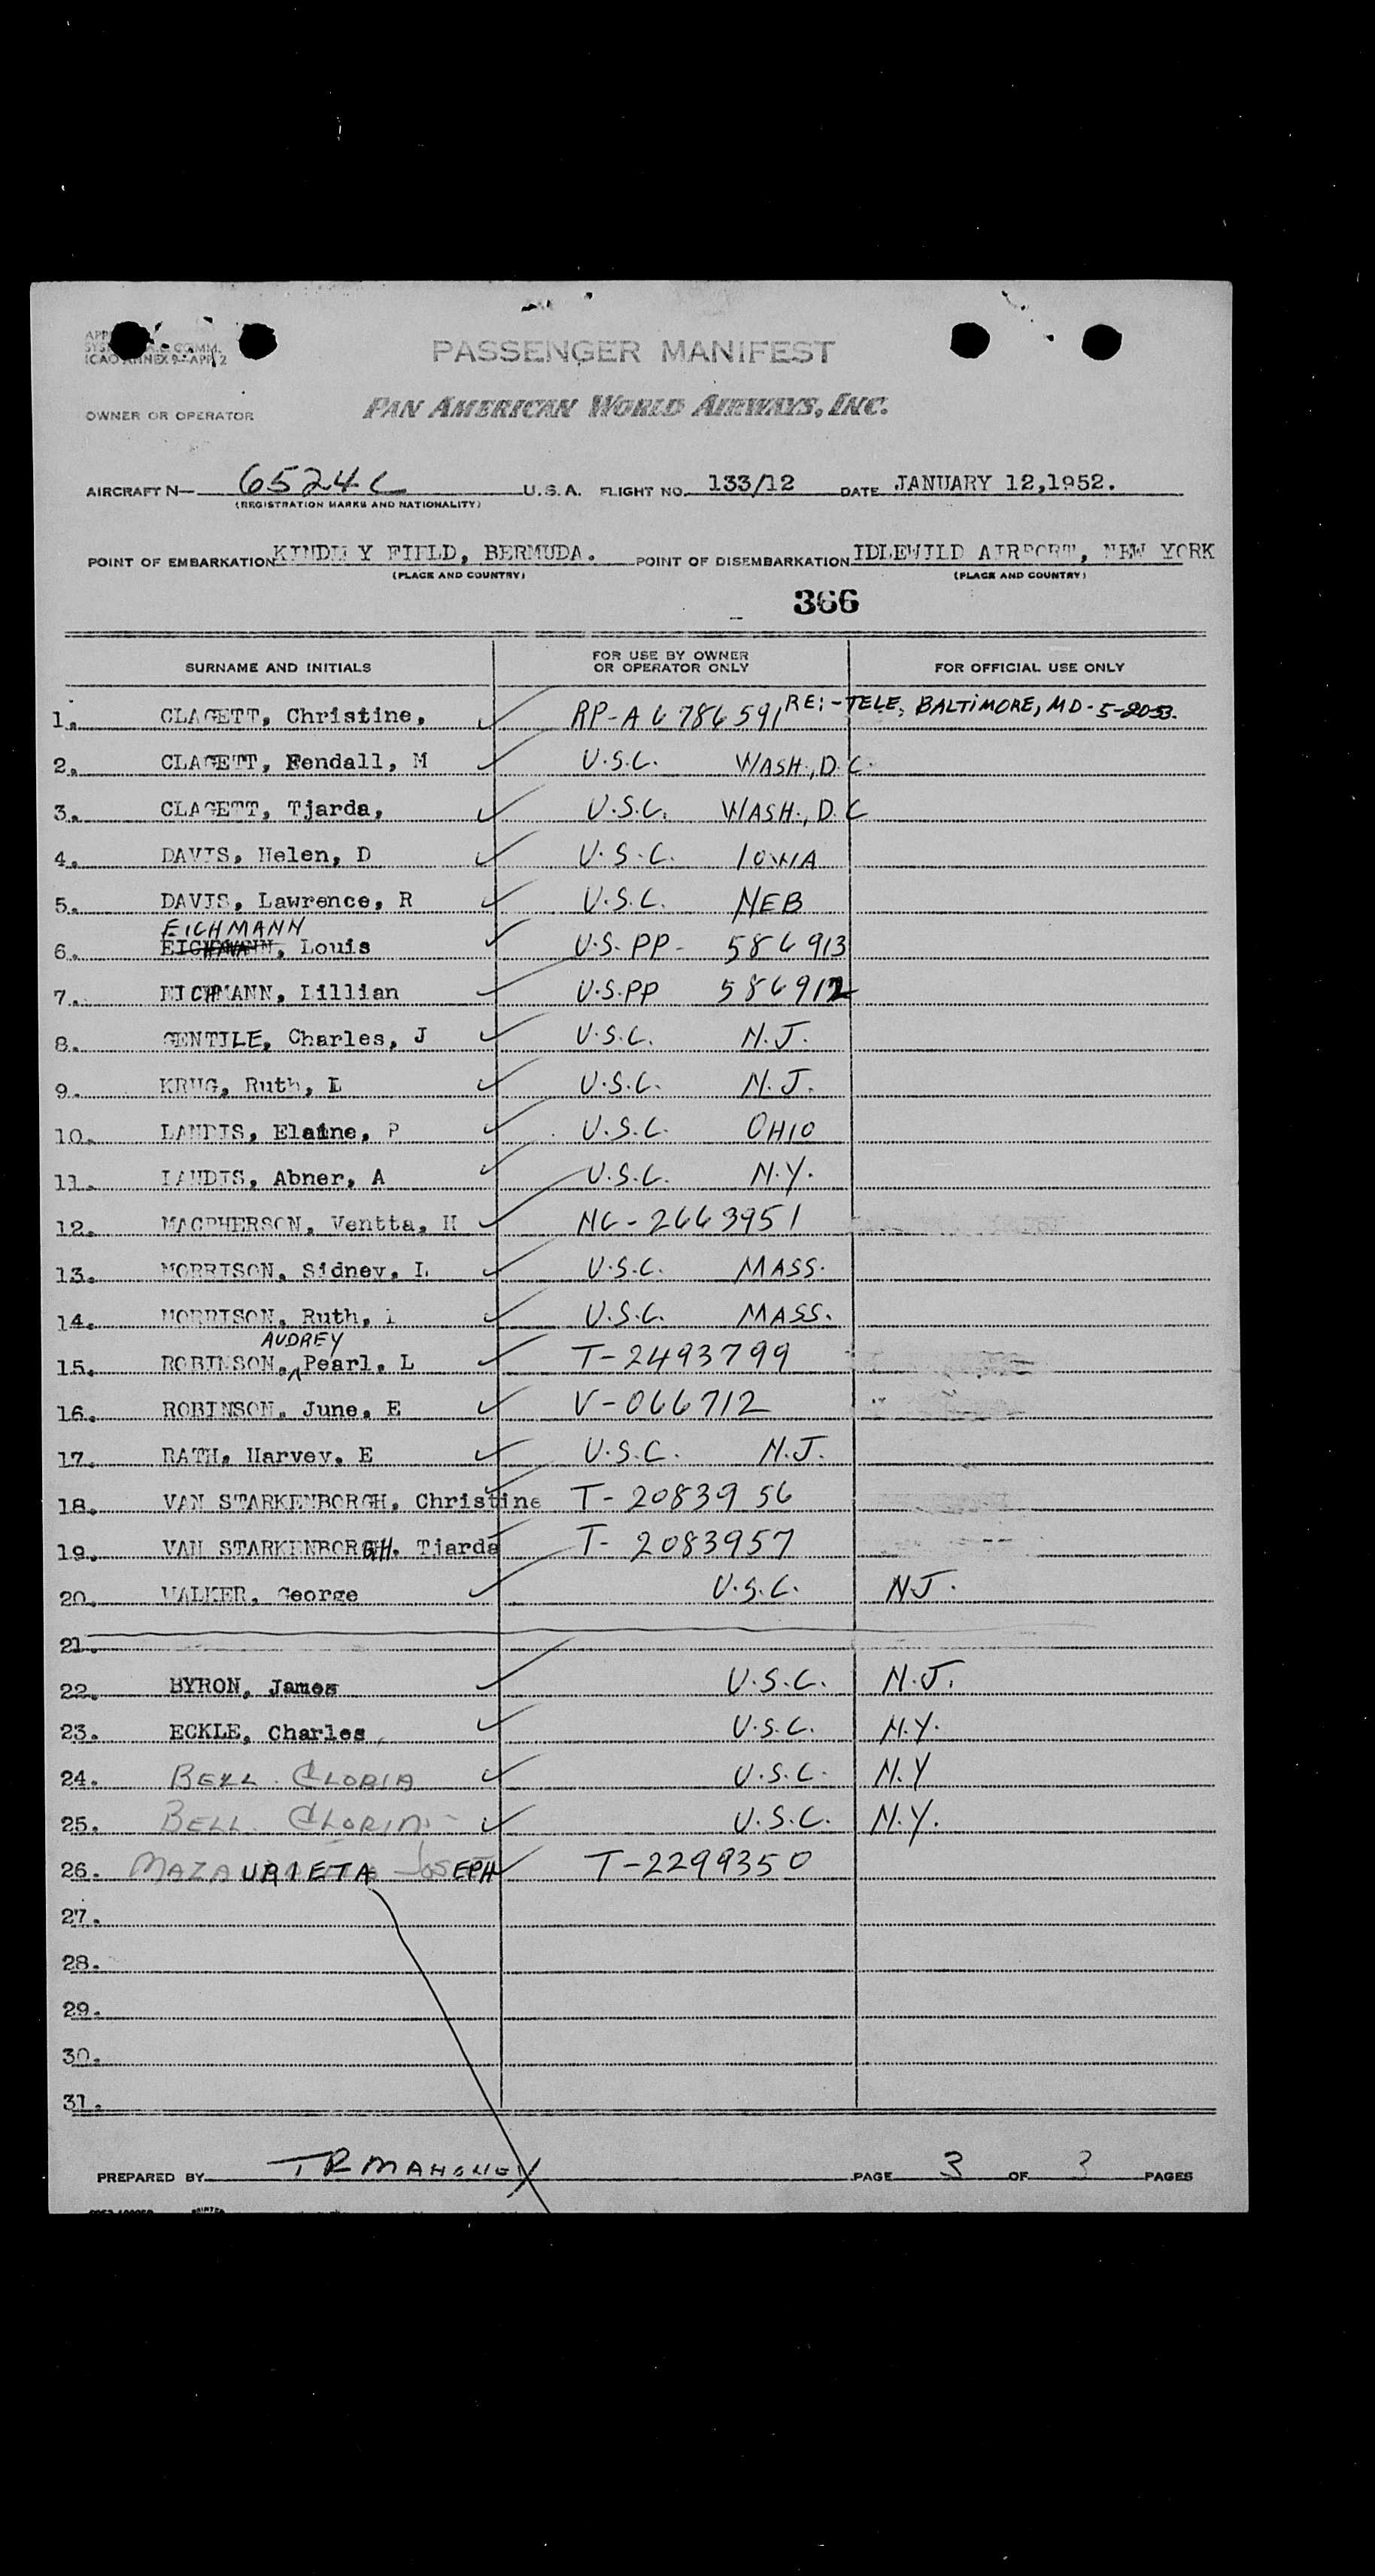 PASSENGER MANIFEST
ICAO ANNEX 9-APP. 2
OWNER OR OPERATOR PAN AMERICAN WORLD AIRWAYS, INC.
AIRCRAFT N— 6524C U.S.A. FLIGHT NO. 133/12 DATE JANUARY 12,1952.
(REGISTRATION MARKS AND NATIONALITY)
POINT OF EMBARKATION KINDLEY FIELD, BERMUDA. POINT OF DISEMBARKATION IDLEWILD AIRPORT, NEW YORK
(PLACE AND COUNTRY) (PLACE AND COUNTRY)
366
SURNAME AND INITIALS FOR USE BY OWNER OR OPERATOR ONLY FOR OFFICIAL USE ONLY
1. CLAGETT, Christine, ✓ RP-A6786591 RE:-TELE, BALTIMORE, MD. 5-20-53.
2. CLAGETT, Fendall, M ✓ U.S.C. WASH., D.C.
3. CLAGETT, Tjarda, ✓ U.S.C. WASH., D.C
4. DAVIS, Helen, D ✓ U.S.C. IOWA
5. DAVIS, Lawrence, R ✓ U.S.C. NEB
EICHMANN
6. EICHMANN, Louis ✓ U.S. PP- 586913
7. EICHMANN, Lillian ✓ U.S.PP 586912
8. GENTILE, Charles, J ✓ U.S.C. N.J.
9. KRUG, Ruth, L ✓ U.S.C. N.J.
10. LANDIS, Elaine, P ✓ U.S.C. OHIO
11. LANDIS, Abner, A ✓ U.S.C. N.Y.
12. MACPHERSON, Ventta, H ✓ NC-2663951
13. MORRISON, Sidney, L ✓ U.S.C. MASS.
14. MORRISON, Ruth, ✓ U.S.C. MASS.
AUDREY
15. ROBINSON, Pearl, L ✓ T-2493799
16. ROBINSON, June, E ✓ V-066712
17. RATH, Harvey, E ✓ U.S.C. N.J.
18. VAN STARKENBORGH, Christine ✓ T-2083956
19. VAN STARKENBORGH, Tjarda ✓ T-2083957
20. WALKER, George ✓ U.S.C. NJ.
21.
22. BYRON, James ✓ U.S.C. N.J.
23. ECKLE, Charles ✓ U.S.C. N.Y.
24. BELL. GLORIA ✓ U.S.C. N.Y
25. BELL. GLORIA ✓ U.S.C. N.Y.
26. MAZAURIETA JOSEPH ✓ T-2299350
27.
28.
29.
30.
31.
PREPARED BY TRMAHONEY PAGE 3 OF 3 PAGES